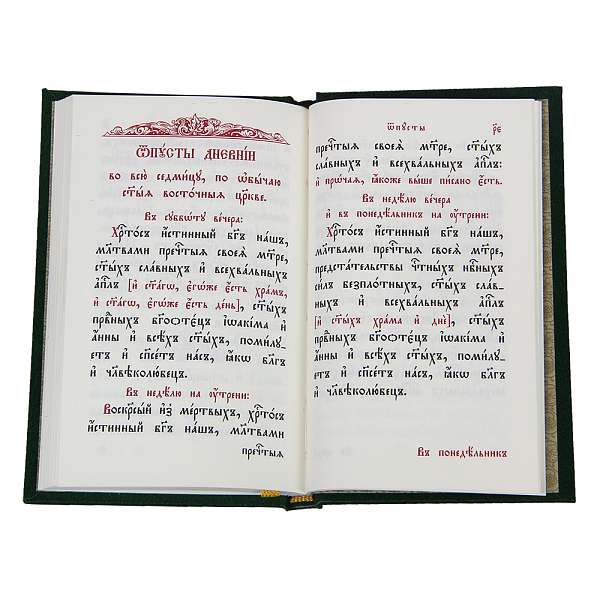 Ѿпꙋ́сты дневні́и
во всю̀ седми́цꙋ, по ѻ҆бы́чаю
ст҃ы́ѧ восто́чныѧ цр҃кве.
Въ сꙋббѡ́тꙋ ве́чера:
Хрⷭ҇то́съ и҆́стинный бг҃ъ на́шъ,
мл҃твами пречⷭ҇тыѧ своеѧ̀ мт҃ре,
ст҃ы́хъ сла́вныхъ и҆ всехва́льныхъ
а҆пⷭ҇лъ [и҆ ст҃а́гѡ, є҆гѡ́же є҆́сть хра́мъ,
и҆ ст҃а́гѡ, є҆гѡ́же є҆́сть де́нь], ст҃ы́хъ
првⷣныхъ бг҃оѻте́цъ і҆ѡакі́ма и҆
а҆́нны и҆ всѣ́хъ ст҃ы́хъ, поми́лꙋ_
етъ и҆ сп҃се́тъ на́съ, ꙗ҆́кѡ бл҃гъ
и҆ чл҃вѣколю́бецъ.
Въ недѣ́лю на ᲂу҆́трени:
Воскрⷭ҇сы́й и҆з̾ ме́ртвыхъ, хрⷭ҇то́съ
и҆́стинный бг҃ъ на́шъ, мл҃твами
пречⷭ҇тыѧ
ѿпꙋ́сты р҃є
пречⷭ҇тыѧ своеѧ̀ мт҃ре, ст҃ы́хъ
сла́вныхъ и҆ всехва́льныхъ а҆пⷭ҇лъ:
и҆ прѡ́чаѧ, ꙗ҆́коже вы́ше пи́сано є҆́сть.
Въ недѣ́лю ве́чера
и҆ въ понедѣ́льникъ на ᲂу҆́трени:
Хрⷭ҇то́съ и҆́стинный бг҃ъ на́шъ,
мл҃твами пречⷭ҇тыѧ своеѧ̀ мт҃ре,
предста́тельствы чⷭ҇тны́хъ нбⷭ҇ныхъ
си́лъ безпло́тныхъ, ст҃ы́хъ сла́в_
ныхъ и҆ всехва́льныхъ а҆пⷭ҇лъ
[и҆ ст҃ы́хъ хра́ма и҆ днѐ], ст҃ы́хъ
првⷣныхъ бг҃оѻте́цъ і҆ѡакі́ма и҆
а҆́нны и҆ всѣ́хъ ст҃ы́хъ, поми́лꙋ_
етъ и҆ сп҃се́тъ на́съ, ꙗ҆́кѡ бл҃гъ
и҆ чл҃вѣколю́бецъ.
Въ понедѣ́льникъ